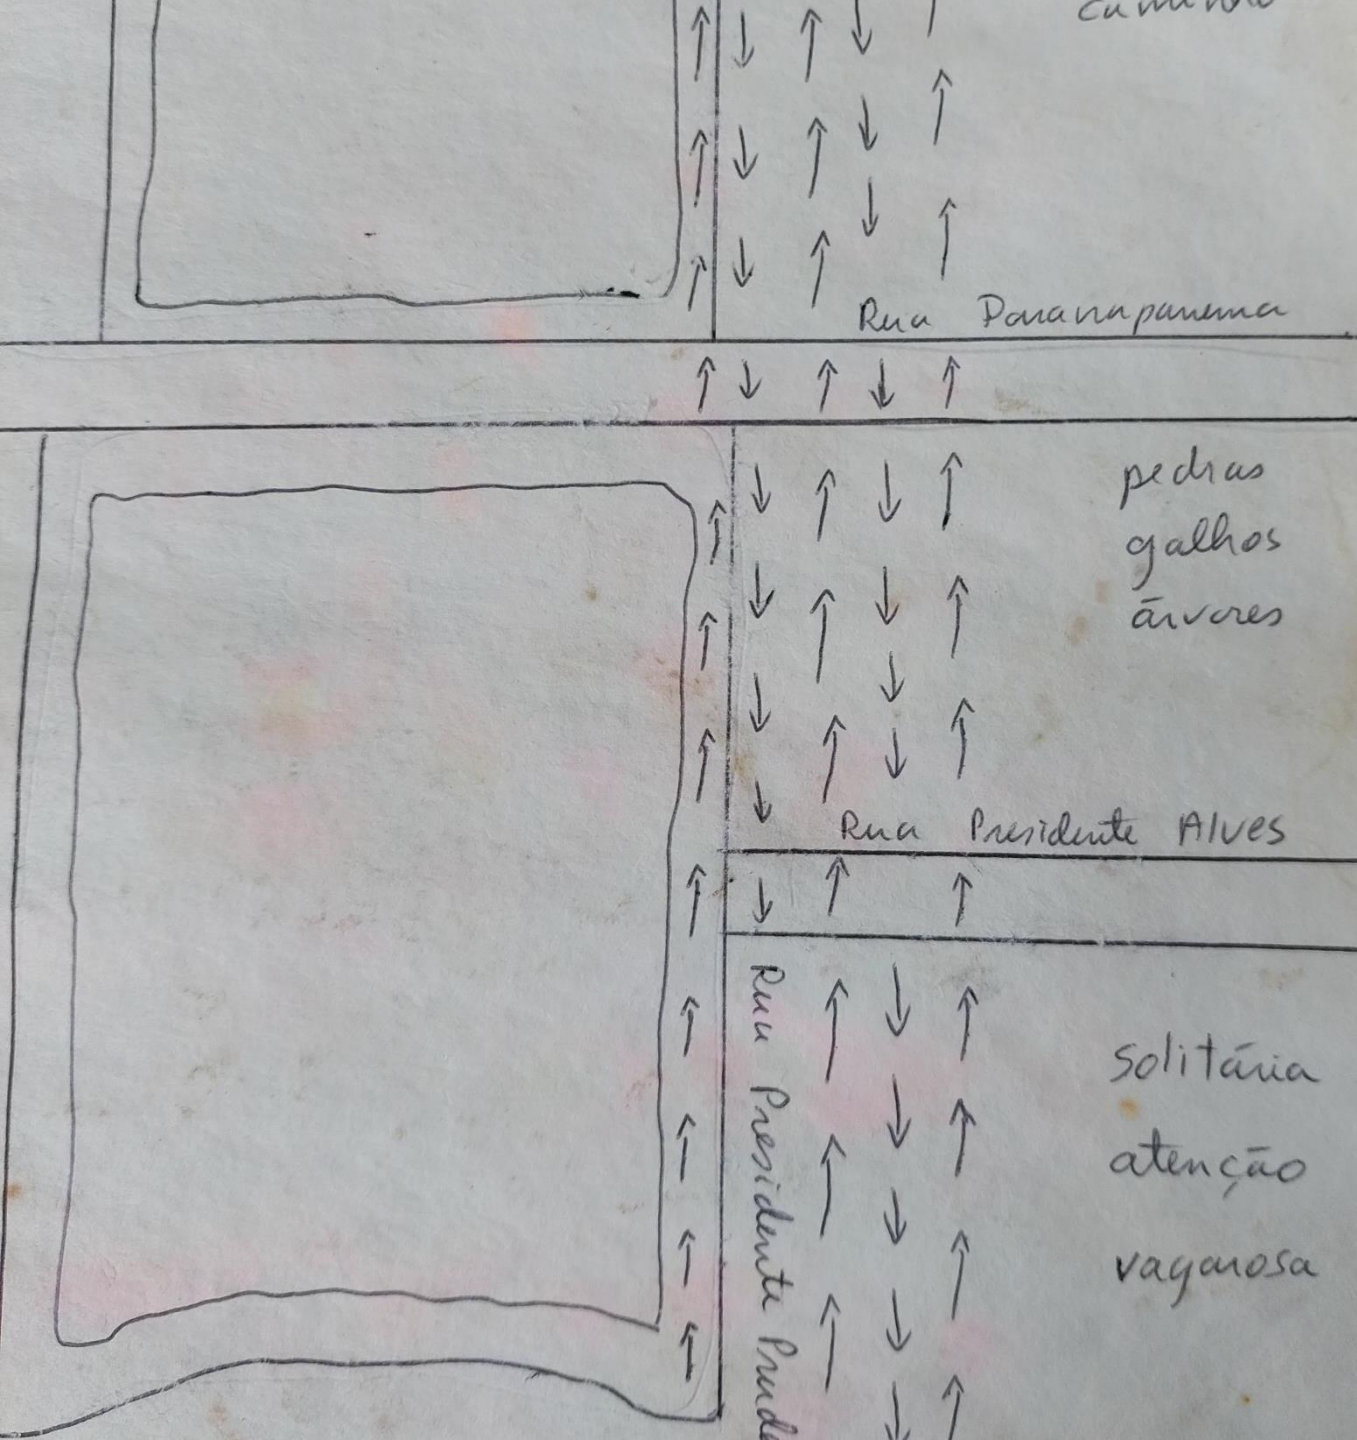 Rua Paranapanema
pedras
galhos
árvores
Rua Presidente Alves
Rua Presidente Prude
solitária
atenção
vagarosa